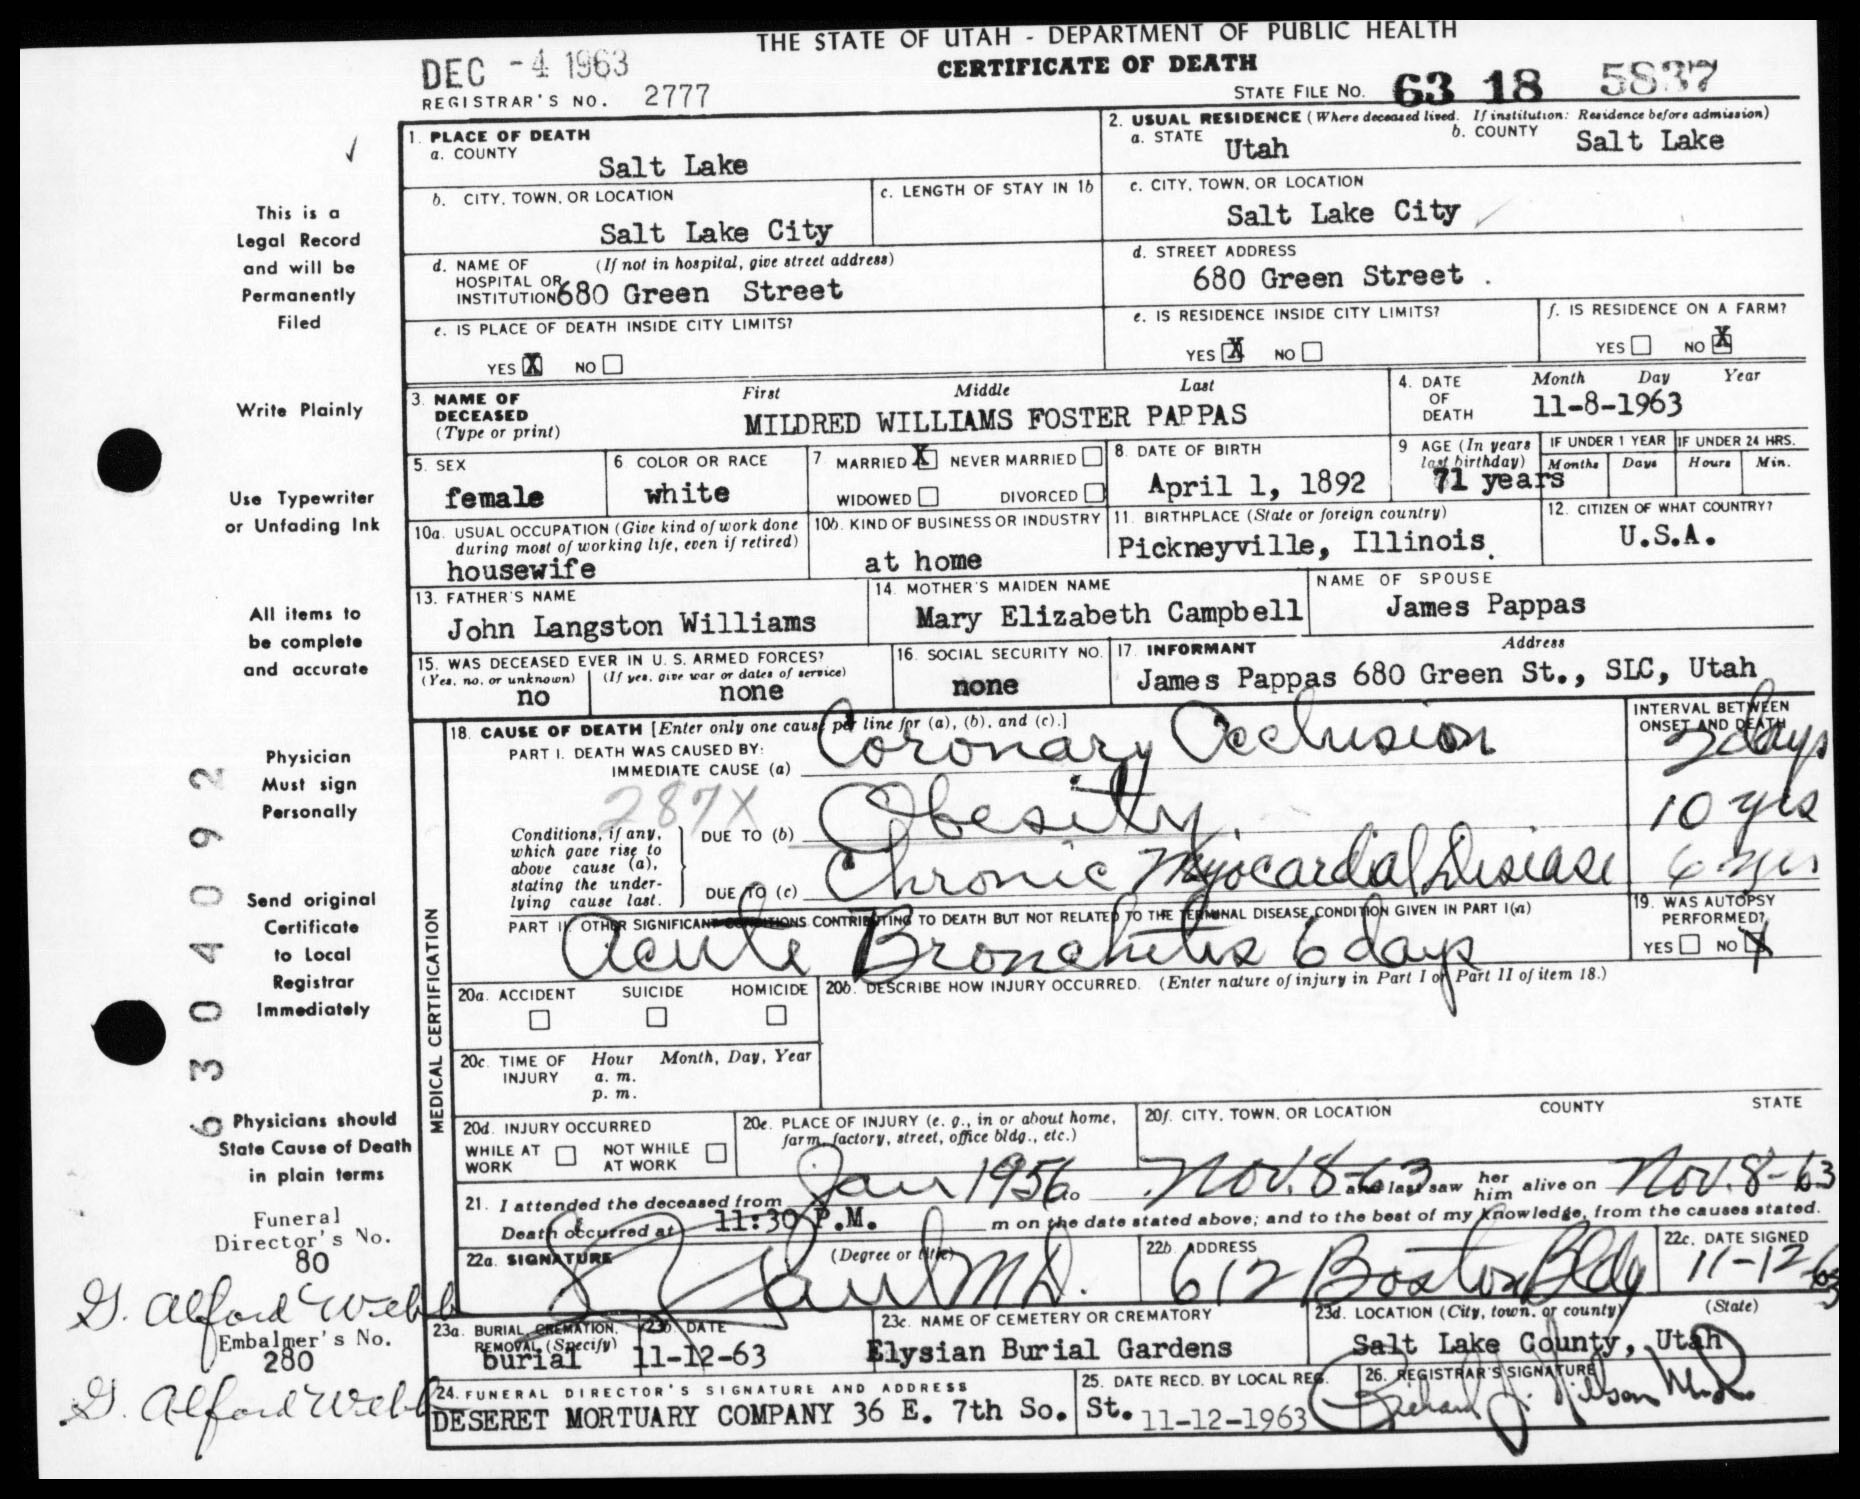 THE STATE OF UTAH - DEPARTMENT OF PUBLIC HEALTH
CERTIFICATE OF DEATH
DEC -4 1963
REGISTRAR'S NO. 2777
STATE FILE NO. 63 18 5837
1. PLACE OF DEATH
a. COUNTY
Salt Lake
2. USUAL RESIDENCE (Where deceased lived. If institution: Residence before admission)
a. STATE Utah b. COUNTY Salt Lake
b. CITY, TOWN, OR LOCATION
Salt Lake City
c. LENGTH OF STAY IN 1b
c. CITY, TOWN, OR LOCATION
Salt Lake City
d. NAME OF HOSPITAL OR INSTITUTION (If not in hospital, give street address)
680 Green Street
d. STREET ADDRESS
680 Green Street .
e. IS PLACE OF DEATH INSIDE CITY LIMITS?
YES X NO
e. IS RESIDENCE INSIDE CITY LIMITS?
YES X NO
f. IS RESIDENCE ON A FARM?
YES NO X
3. NAME OF DECEASED (Type or print)
First Middle Last
MILDRED WILLIAMS FOSTER PAPPAS
4. DATE OF DEATH
Month Day Year
11-8-1963
5. SEX
female
6. COLOR OR RACE
white
7. MARRIED X NEVER MARRIED
WIDOWED DIVORCED
8. DATE OF BIRTH
April 1, 1892
9 AGE (In years last birthday)
71 years
IF UNDER 1 YEAR
Months Days
IF UNDER 24 HRS.
Hours Min.
10a. USUAL OCCUPATION (Give kind of work done during most of working life, even if retired)
housewife
10b. KIND OF BUSINESS OR INDUSTRY
at home
11. BIRTHPLACE (State or foreign country)
Pickneyville, Illinois.
12. CITIZEN OF WHAT COUNTRY?
U.S.A.
13. FATHER'S NAME
John Langston Williams
14. MOTHER'S MAIDEN NAME
Mary Elizabeth Campbell
NAME OF SPOUSE
James Pappas
15. WAS DECEASED EVER IN U. S. ARMED FORCES?
(Yes, no, or unknown) (If yes, give war or dates of service)
no none
16. SOCIAL SECURITY NO.
none
17. INFORMANT Address
James Pappas 680 Green St., SLC, Utah
MEDICAL CERTIFICATION
18. CAUSE OF DEATH [Enter only one cause per line for (a), (b), and (c).]
PART I. DEATH WAS CAUSED BY:
IMMEDIATE CAUSE (a) Coronary Occlusion
INTERVAL BETWEEN ONSET AND DEATH
2 days
287X
Conditions, if any, which gave rise to above cause (a), stating the underlying cause last.
DUE TO (b) Obesity.
10 yrs
DUE TO (c) Chronic Myocardial Disease
6 yrs
PART II. OTHER SIGNIFICANT CONDITIONS CONTRIBUTING TO DEATH BUT NOT RELATED TO THE TERMINAL DISEASE CONDITION GIVEN IN PART I(a)
Acute Bronchitis 6 days
19. WAS AUTOPSY PERFORMED?
YES NO X
20a. ACCIDENT SUICIDE HOMICIDE
20b. DESCRIBE HOW INJURY OCCURRED. (Enter nature of injury in Part I or Part II of item 18.)
20c. TIME OF INJURY Hour Month, Day, Year
a. m.
p. m.
20d. INJURY OCCURRED
WHILE AT WORK NOT WHILE AT WORK
20e. PLACE OF INJURY (e. g., in or about home, farm, factory, street, office bldg., etc.)
20f. CITY, TOWN, OR LOCATION COUNTY STATE
21. I attended the deceased from Jan 1956 to Nov. 8-63 and last saw her him alive on Nov. 8-63
Death occurred at 11:30 P.M. m on the date stated above; and to the best of my knowledge, from the causes stated.
22a. SIGNATURE (Degree or title)
M D.
22b. ADDRESS
612 Boston Bldg
22c. DATE SIGNED
11-12-63
23a. BURIAL, CREMATION, REMOVAL (Specify)
burial
23b. DATE
11-12-63
23c. NAME OF CEMETERY OR CREMATORY
Elysian Burial Gardens
23d. LOCATION (City, town, or county) (State)
Salt Lake County, Utah
24. FUNERAL DIRECTOR'S SIGNATURE AND ADDRESS
DESERET MORTUARY COMPANY 36 E. 7th So. St.
25. DATE RECD. BY LOCAL REG.
11-12-1963
26. REGISTRAR'S SIGNATURE
Richard J. Nilson M.D.
This is a
Legal Record
and will be
Permanently
Filed
Write Plainly
Use Typewriter
or Unfading Ink
All items to
be complete
and accurate
Physician
Must sign
Personally
Send original
Certificate
to Local
Registrar
Immediately
Physicians should
State Cause of Death
in plain terms
Funeral
Director's No.
80
G. Alford Webb
Embalmer's No.
280
G. Alford Webb
6304092